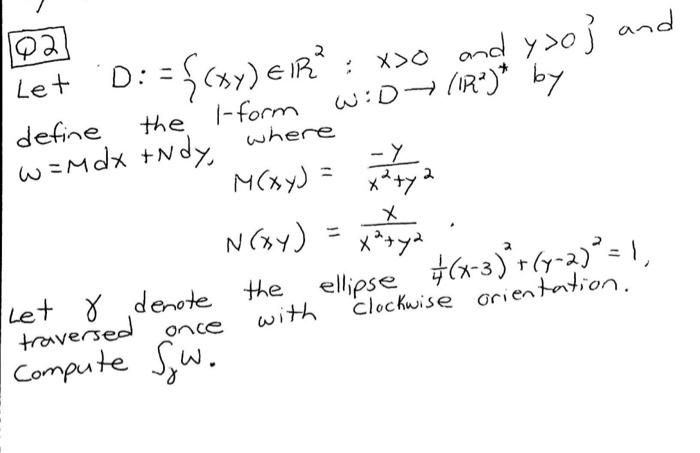 Q2
Let D: = {(xy) ∈ ℝ² : x>0 and y>0} and
define the 1-form ω: D → (ℝ²)* by
ω = Mdx + Ndy, where
M(xy) = -y / x²+y²
N(xy) = x / x²+y² .
Let γ denote the ellipse 1/4(x-3)² + (y-2)² = 1,
traversed once with clockwise orientation.
Compute ∫γ ω.